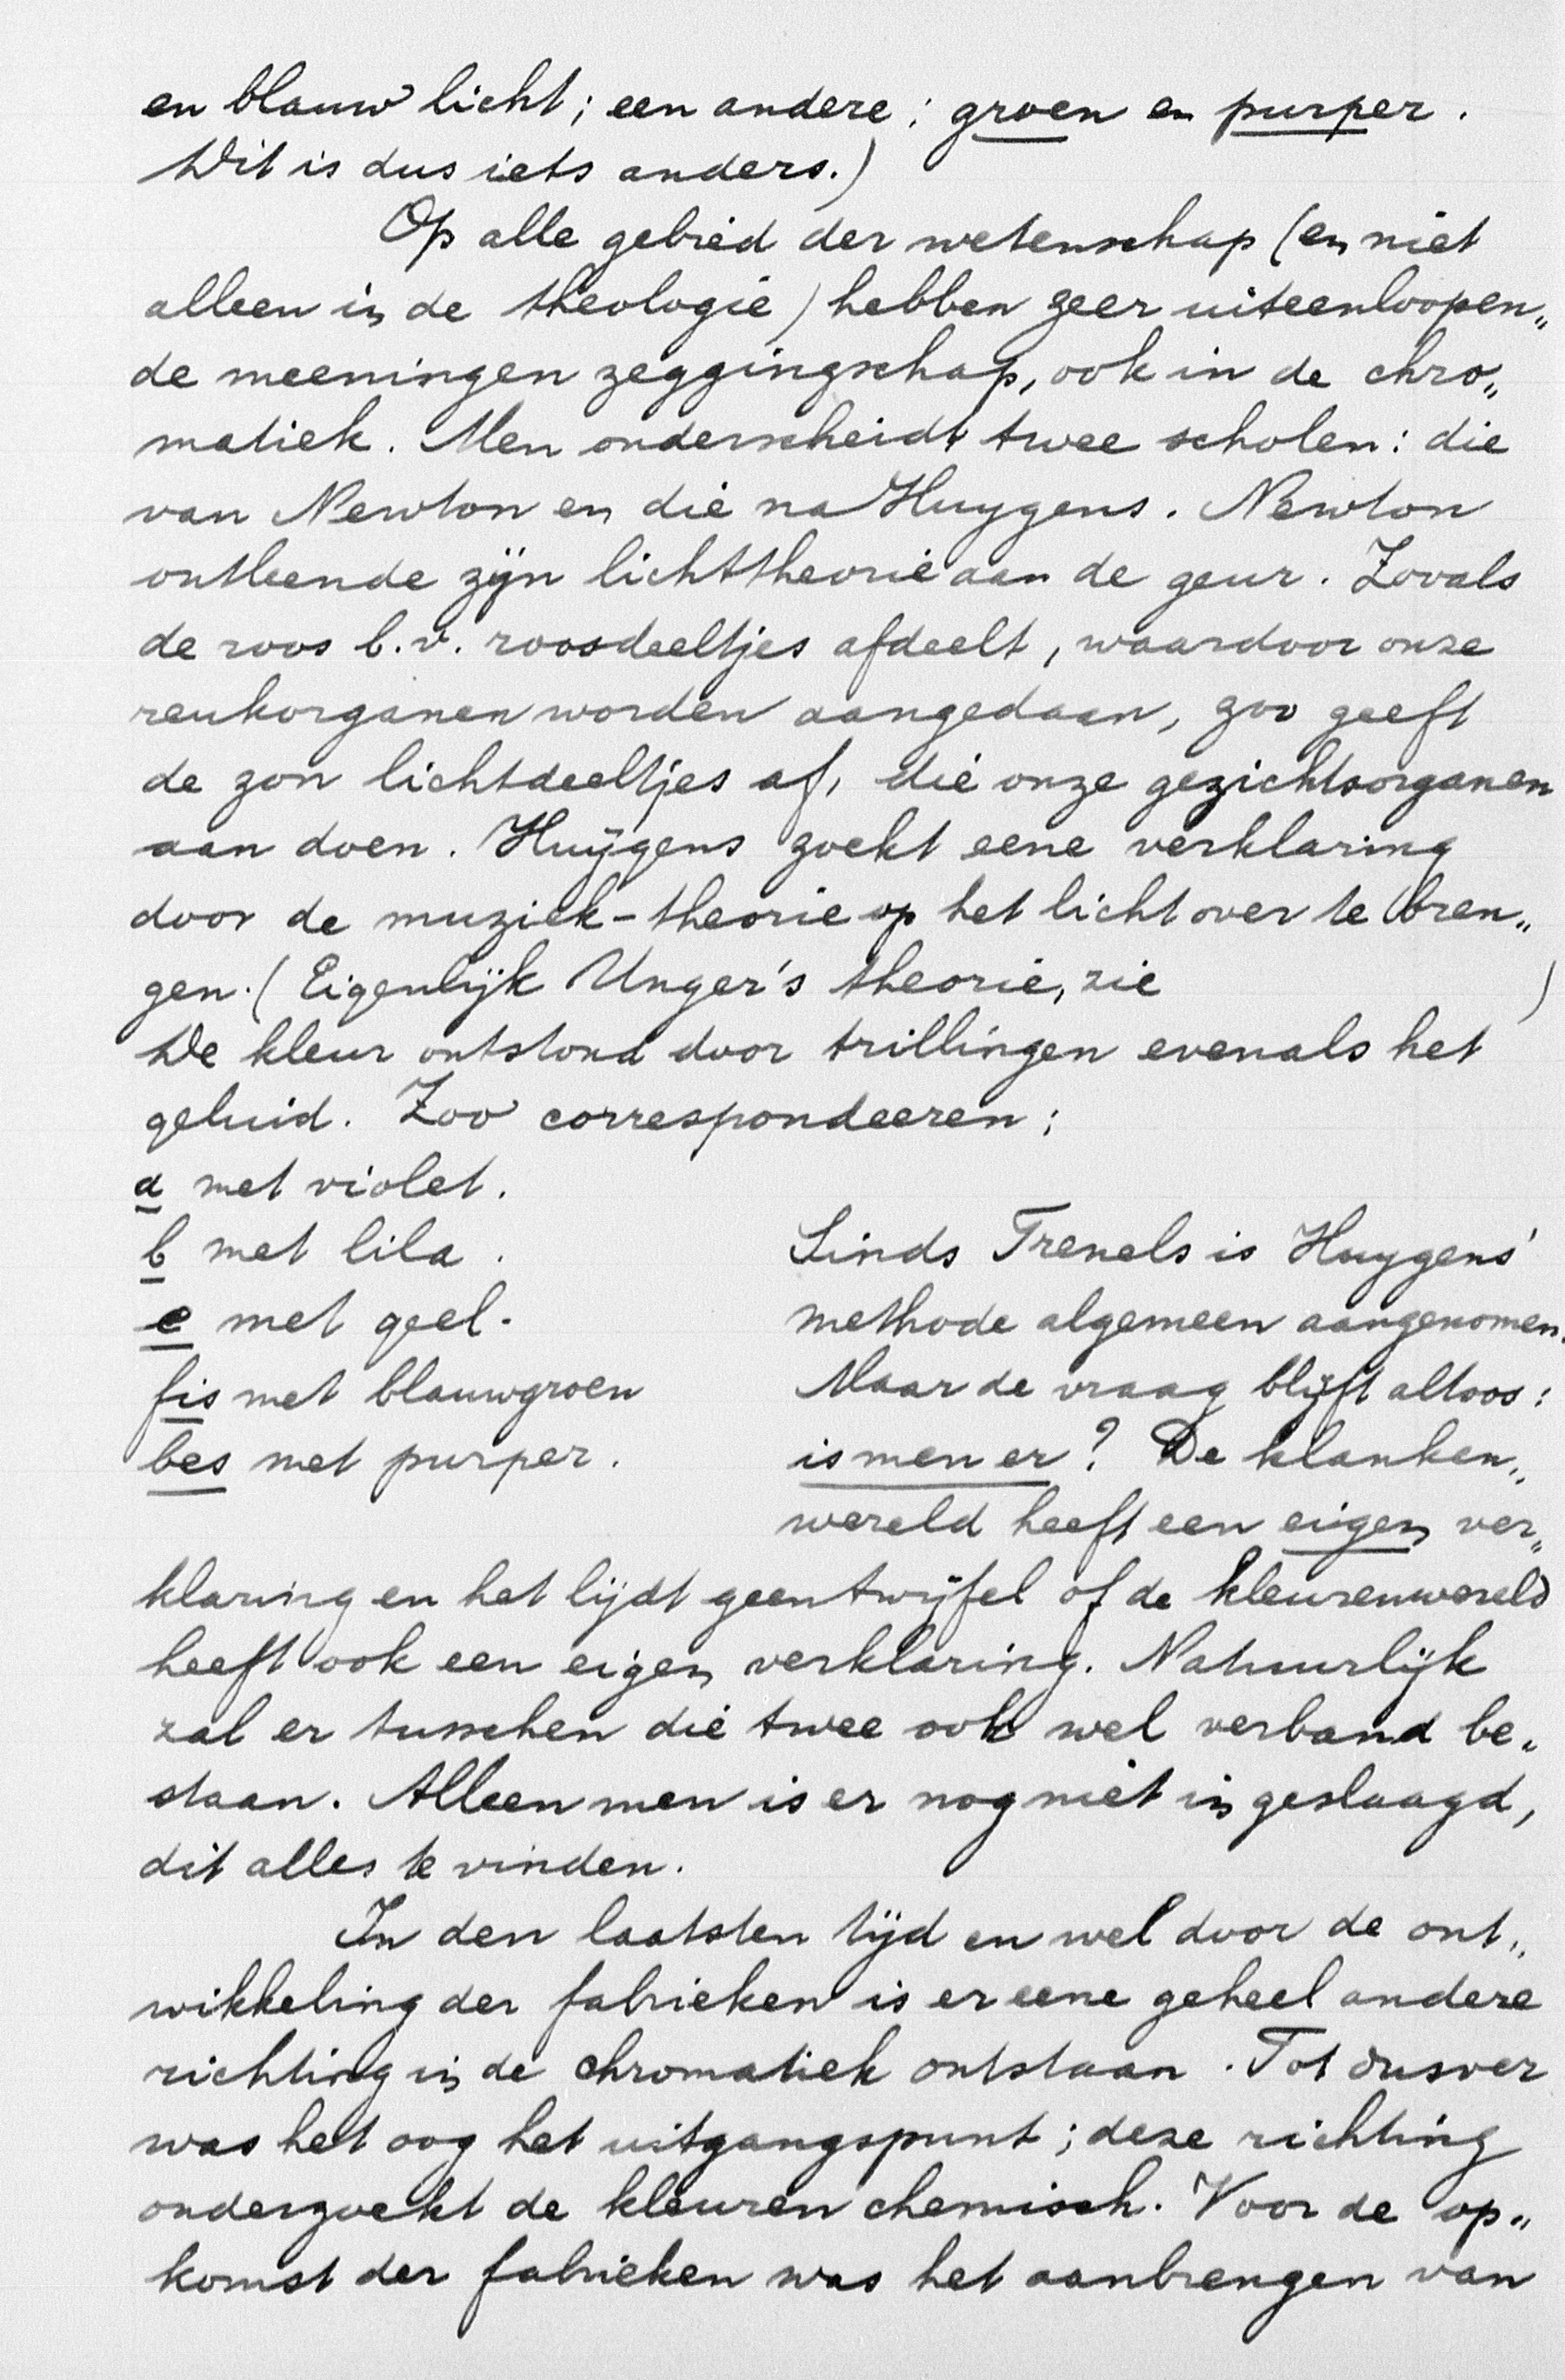 en blauw licht; een andere: groen en purper.
Wit is dus iets anders.)
Op alle gebied der wetenschap (en niet
alleen in de theologie) hebben zeer uiteenloopen„
de meeningen zeggingschap, ook in de chro„
matiek. Men onderscheidt twee scholen: die
van Newton en die na Huygens. Newton
ontleende zijn lichttheorie aan de geur. Zooals
de roos b.v. roosdeeltjes afdeelt, waardoor onze
reukorganen worden aangedaan, zoo geeft
de zon lichtdeeltjes af, die onze gezichtsorganen
aan doen. Huijgens zoekt eene verklaring
door de muziek-theorie op het licht over te bren„
gen. (Eigenlijk Unger's theorie, zie )
De kleur ontstond door trillingen evenals het
geluid. Zoo correspondeeren:
a met violet.
b met lila.
e met geel.
fis met blauwgroen
bes met purper.
Sinds Trenels is Huygens'
methode algemeen aangenomen.
Maar de vraag blijft altoos:
is men er? De klanken„
wereld heeft een eigen ver„
klaring en het lijdt geen twijfel of de kleurenwereld
heeft ook een eigen verklaring. Natuurlijk
zal er tusschen die twee ook wel verband be„
staan. Alleen men is er nog niet in geslaagd,
dit alles te vinden.
In den laatsten tijd en wel door de ont„
wikkeling der fabrieken is er eene geheel andere
richting in de chromatiek ontstaan. Tot dusver
was het oog het uitgangspunt; deze richting
onderzoekt de kleuren chemisch. Voor de op„
komst der fabrieken was het aanbrengen van